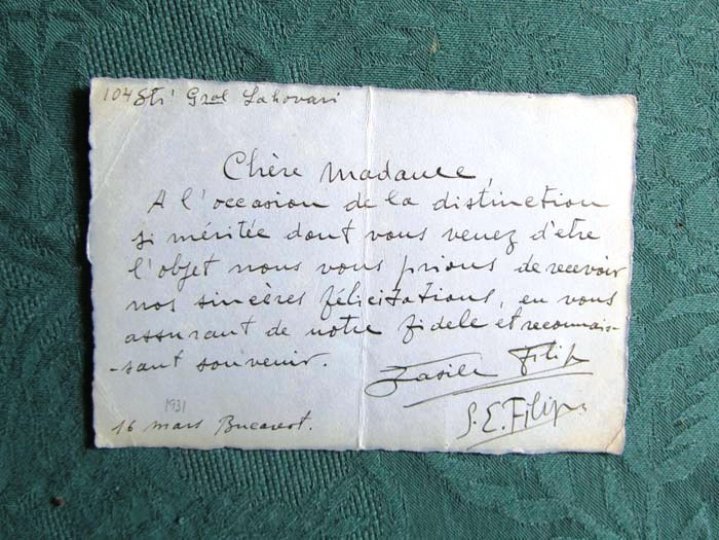 104 Str. Gral Lahovari
Chère Madame,
A l'occasion de la distinction
si méritée dont vous venez d'etre
l'objet nous vous prions de recevoir
nos sincères félicitations, en vous
assurant de notre fidele et reconnais-
-sant souvenir.
Filip
S. E. Filip
1931
16 mars Bucarest.